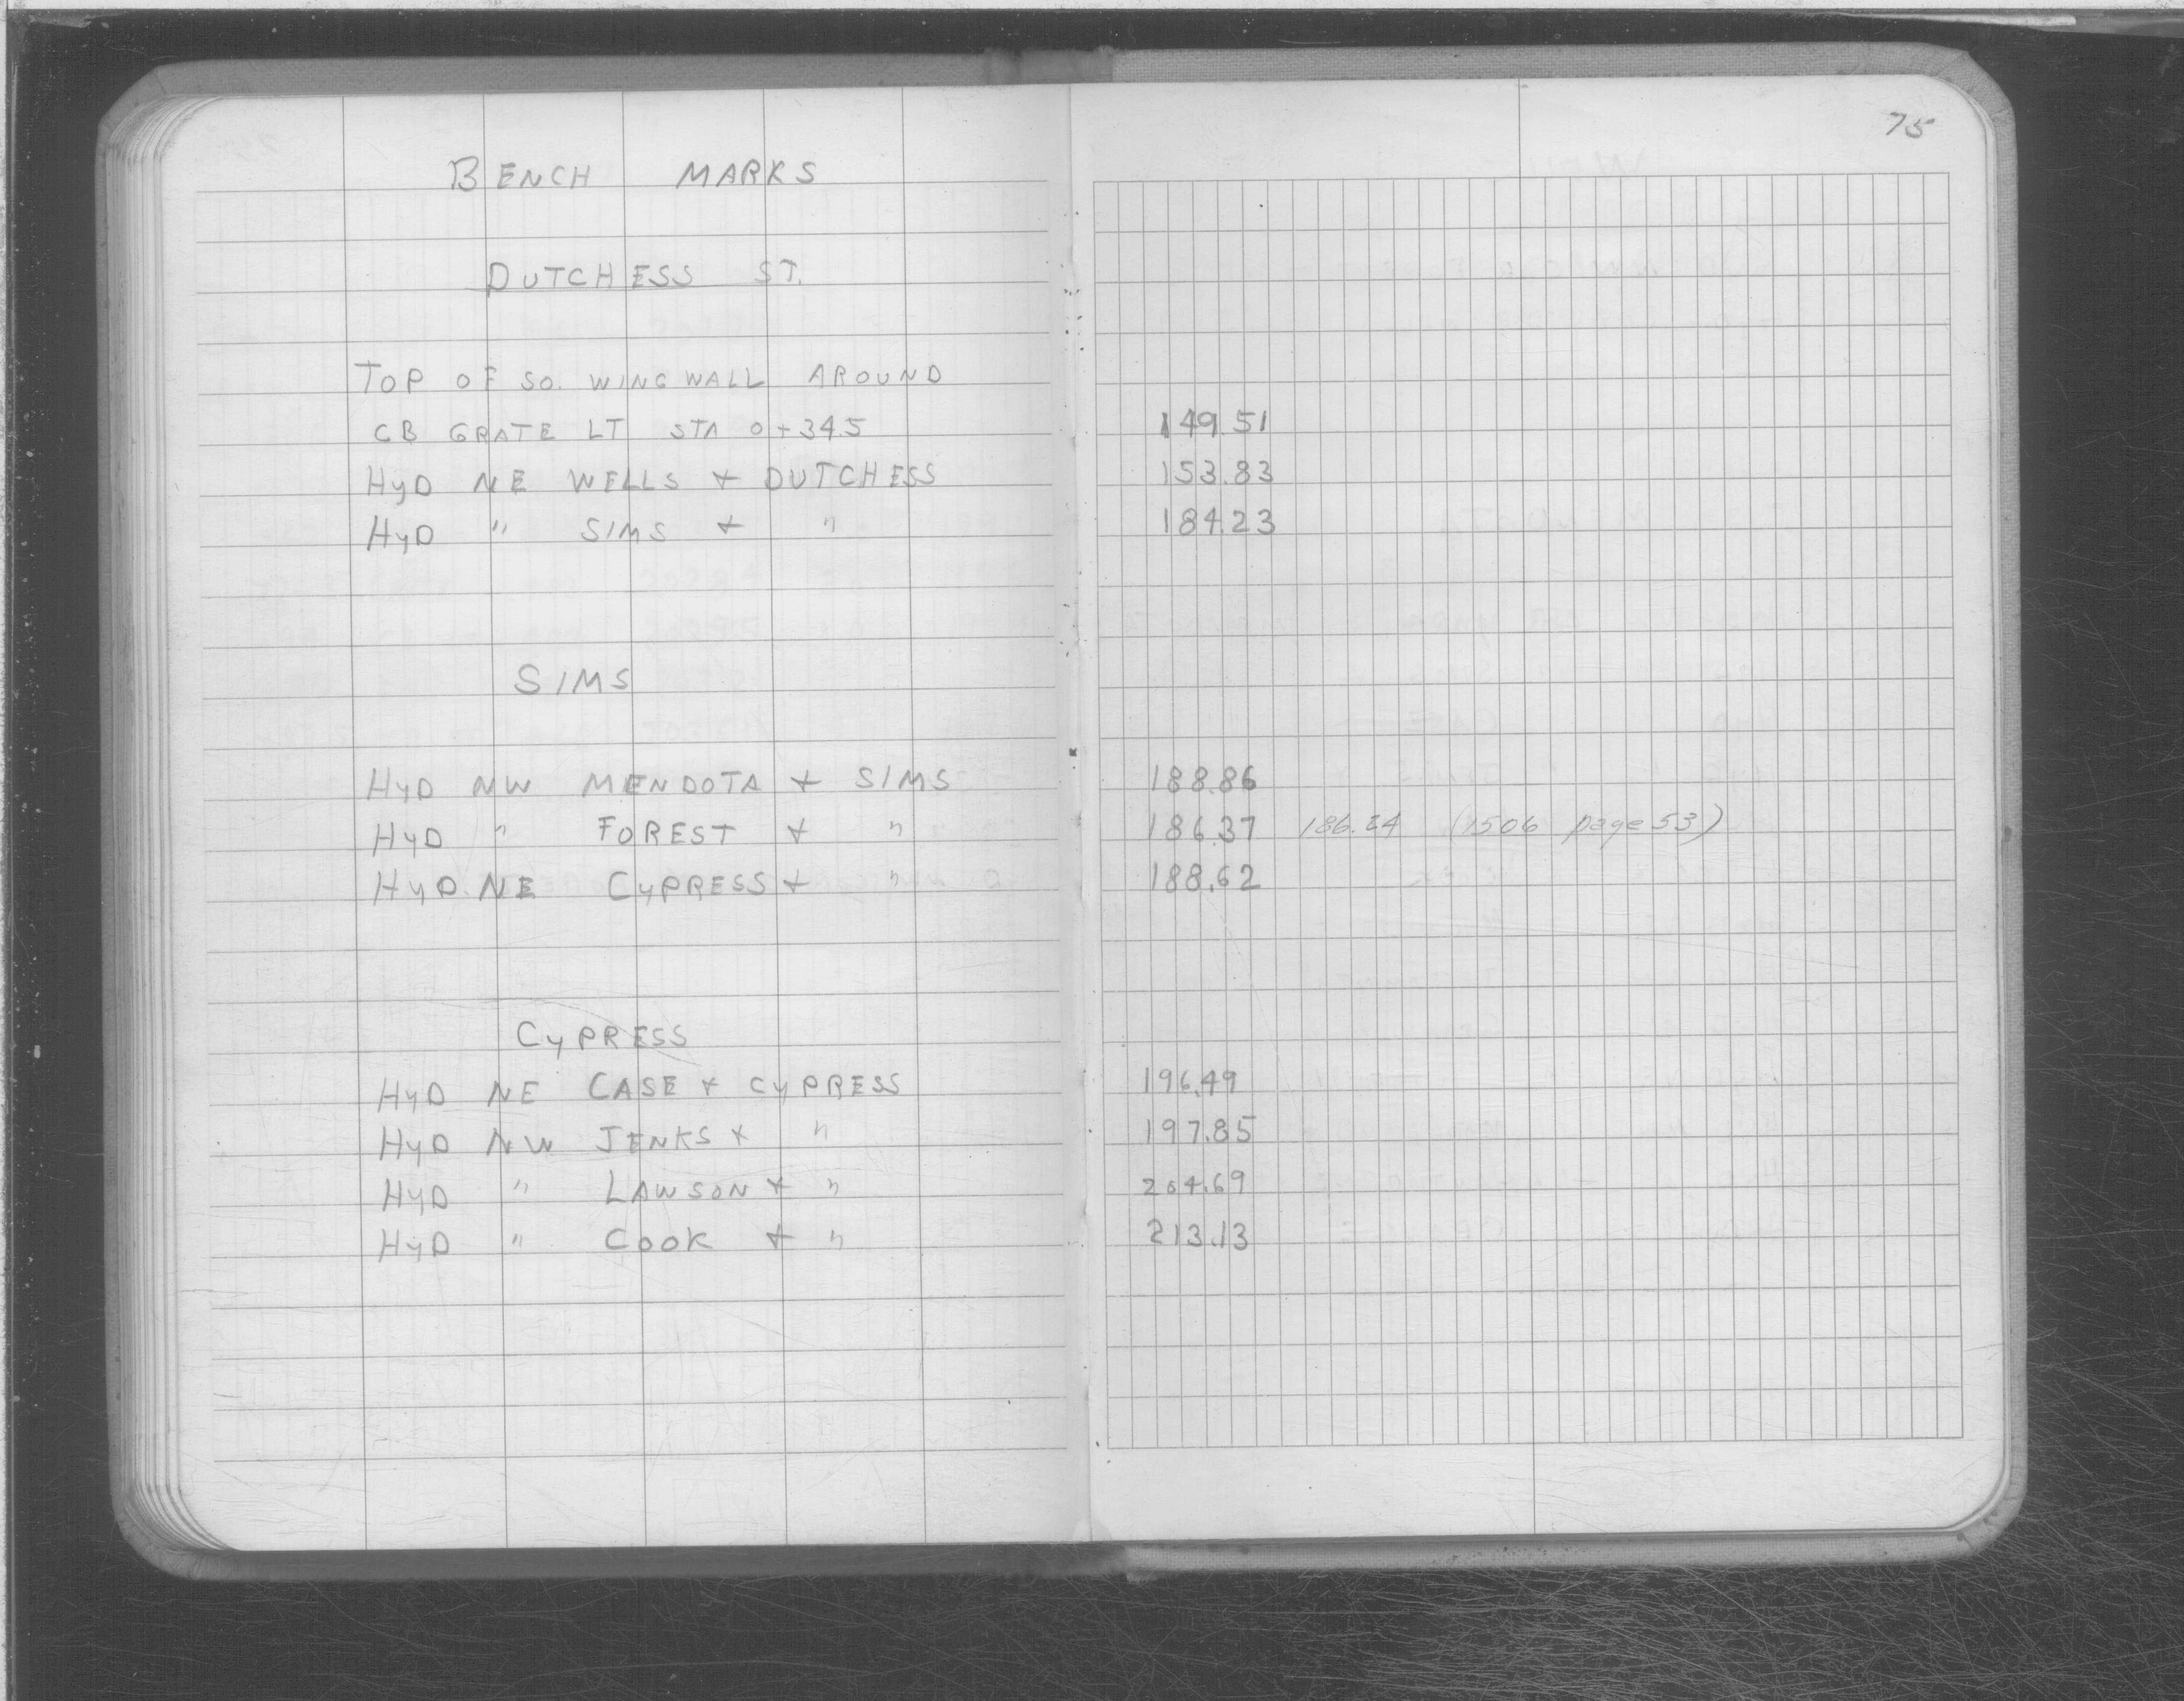 75
BENCH MARKS
DUTCHESS ST.
TOP OF SO. WING WALL AROUND
CB GRATE LT STA 0+34.5 149.51
HyD NE WELLS & DUTCHESS 153.83
HyD " SIMS & " 184.23
SIMS
HyD NW MENDOTA & SIMS 188.86
HyD " FOREST & " 186.37 186.24 (1506 page 53)
HyD NE CyPRESS & " 188.62
CyPRESS
HyD NE CASE & CyPRESS 196.49
HyD NW JENKS & " 197.85
HyD " LAWSON & " 204.69
HyD " COOK & " 213.13